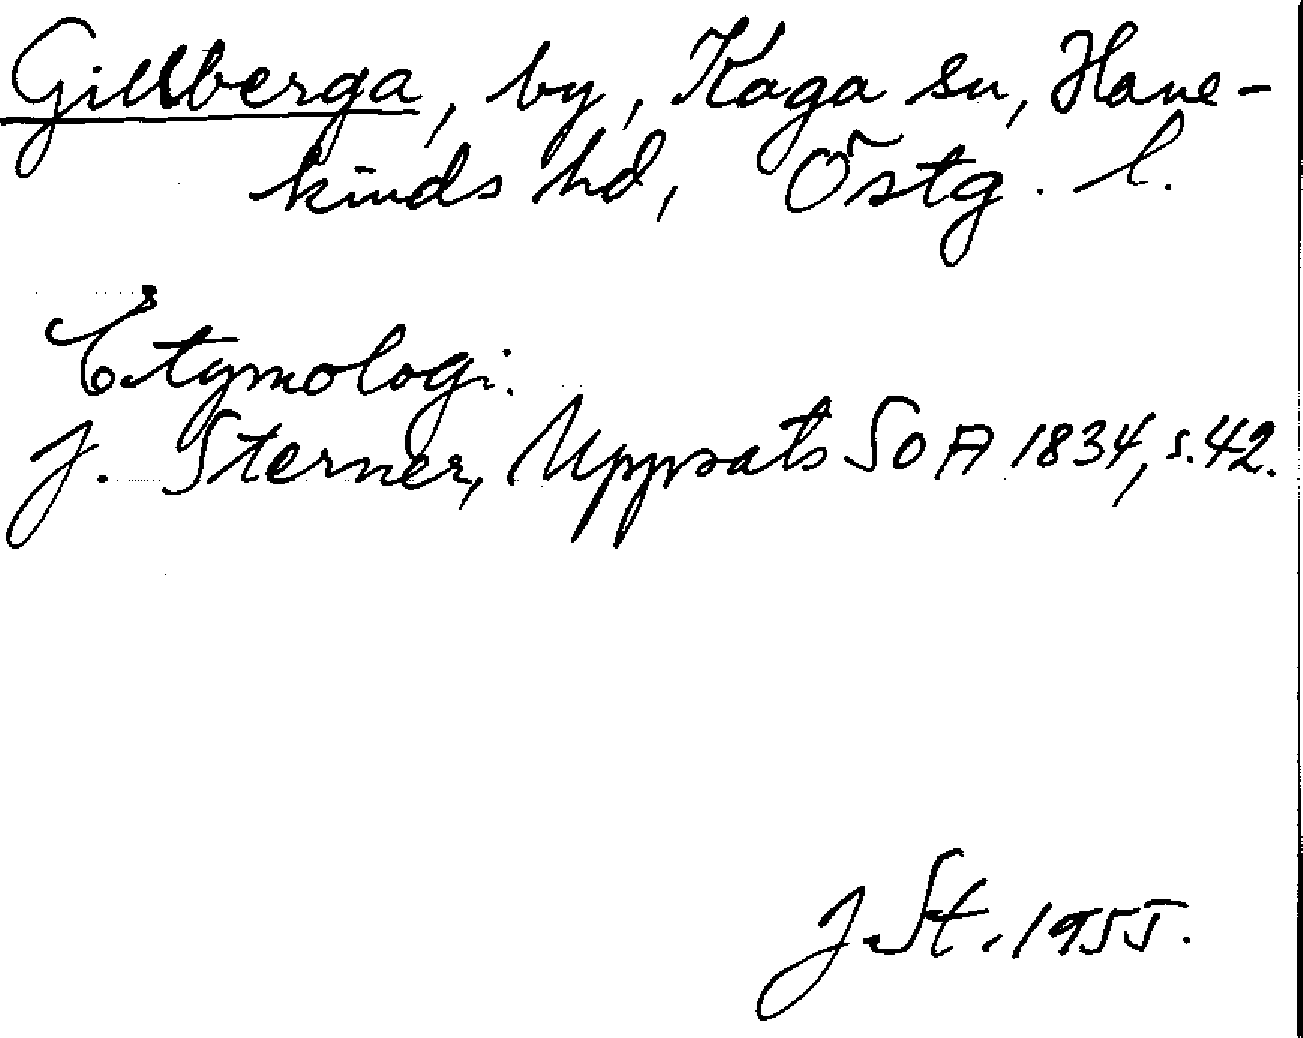 Gillberga, by, Kaga sn, Hane-
kinds hd, Östg. l.
Etymologi:
J. Sterner, Uppsats SOA 1834, s. 42.
J. St. 1955.